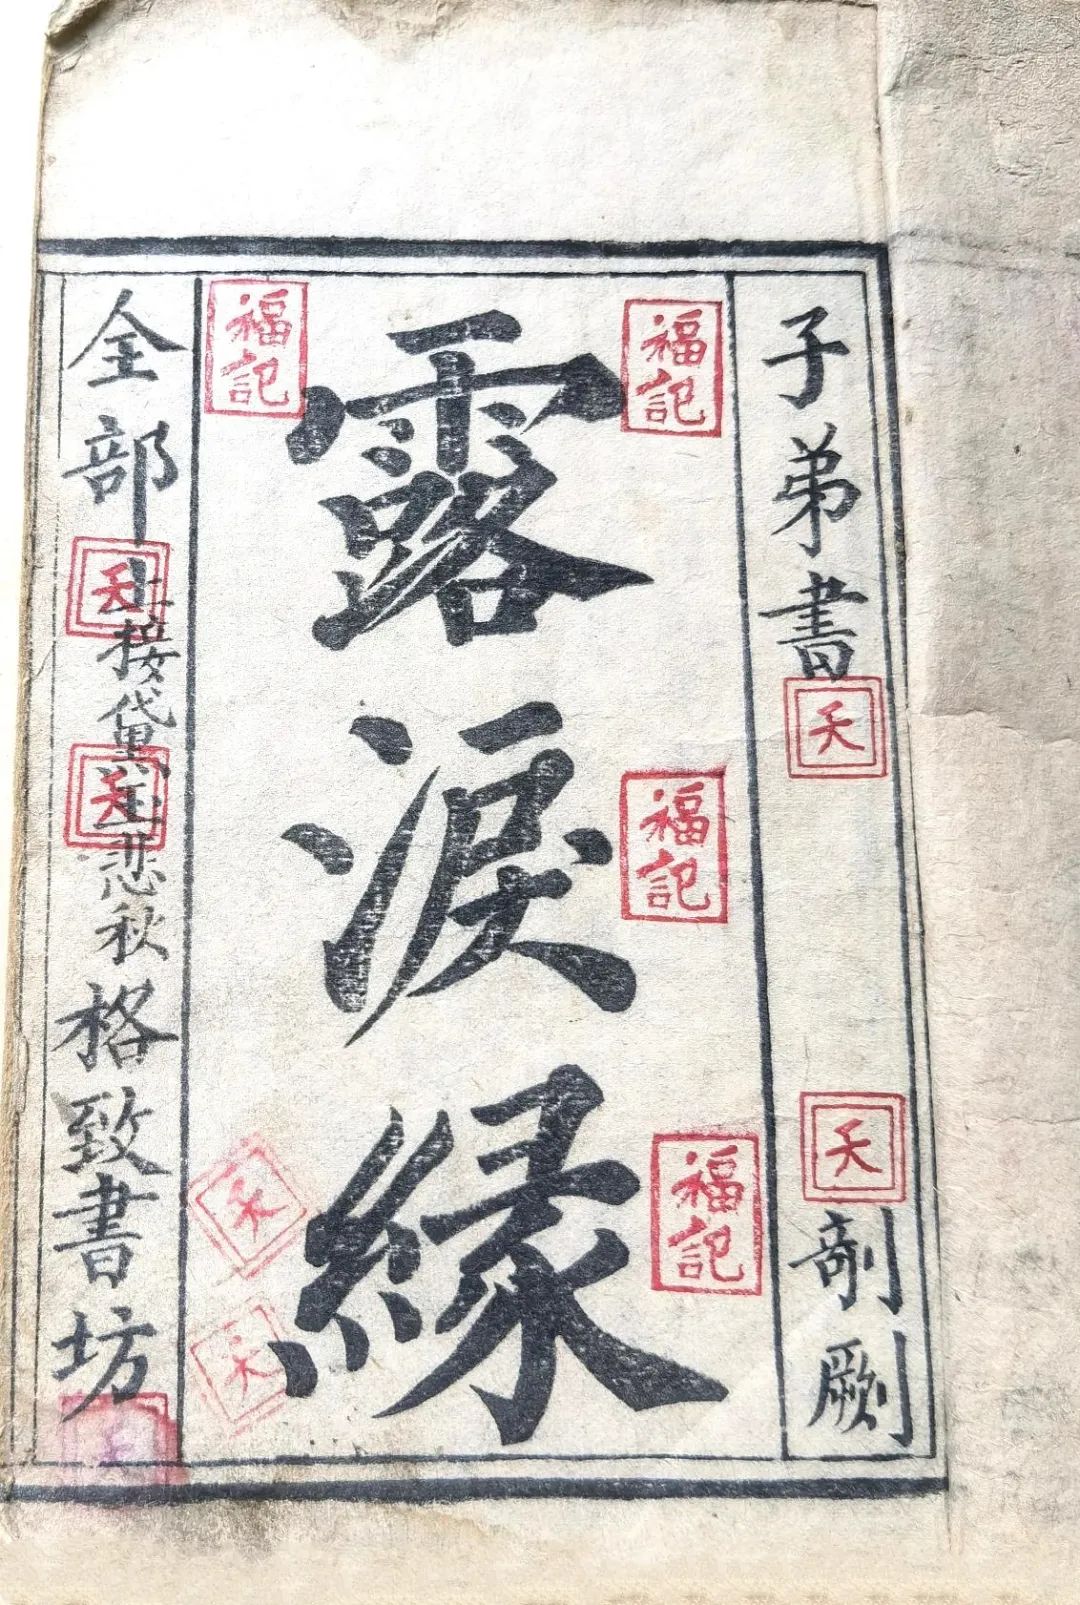 子弟書
天
天
剞劂
福記
福記
福記
露淚緣
福記
天
天
全部
上接黛玉悲秋
天
天
格致書坊